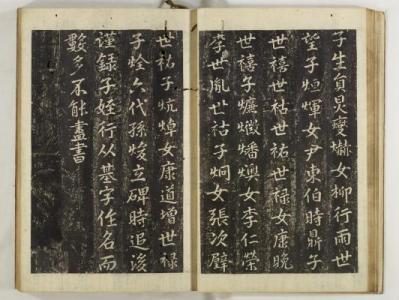 子生貟炅燮爀女柳行雨世
望子烜煇女尹東伯時鼎子
世禧世祜世祐世禄女康晚
世禧子燔燠女李仁榮
李世胤世祜子炯女張次璧
世祐子炕焯女康道增世禄
子烇六代孫焌立碑時追後
謹録子姪行从基字任名而
數多不能盡書